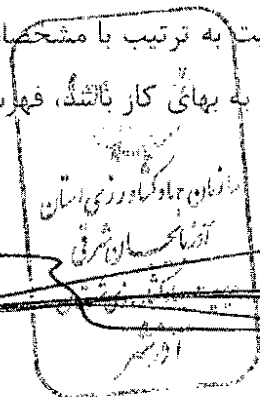 یت به ترتیب با مشخصا
به بهائی کار باشد، فهر
سازمان جهاد کشاورزی استان
آذربایجان شرقی